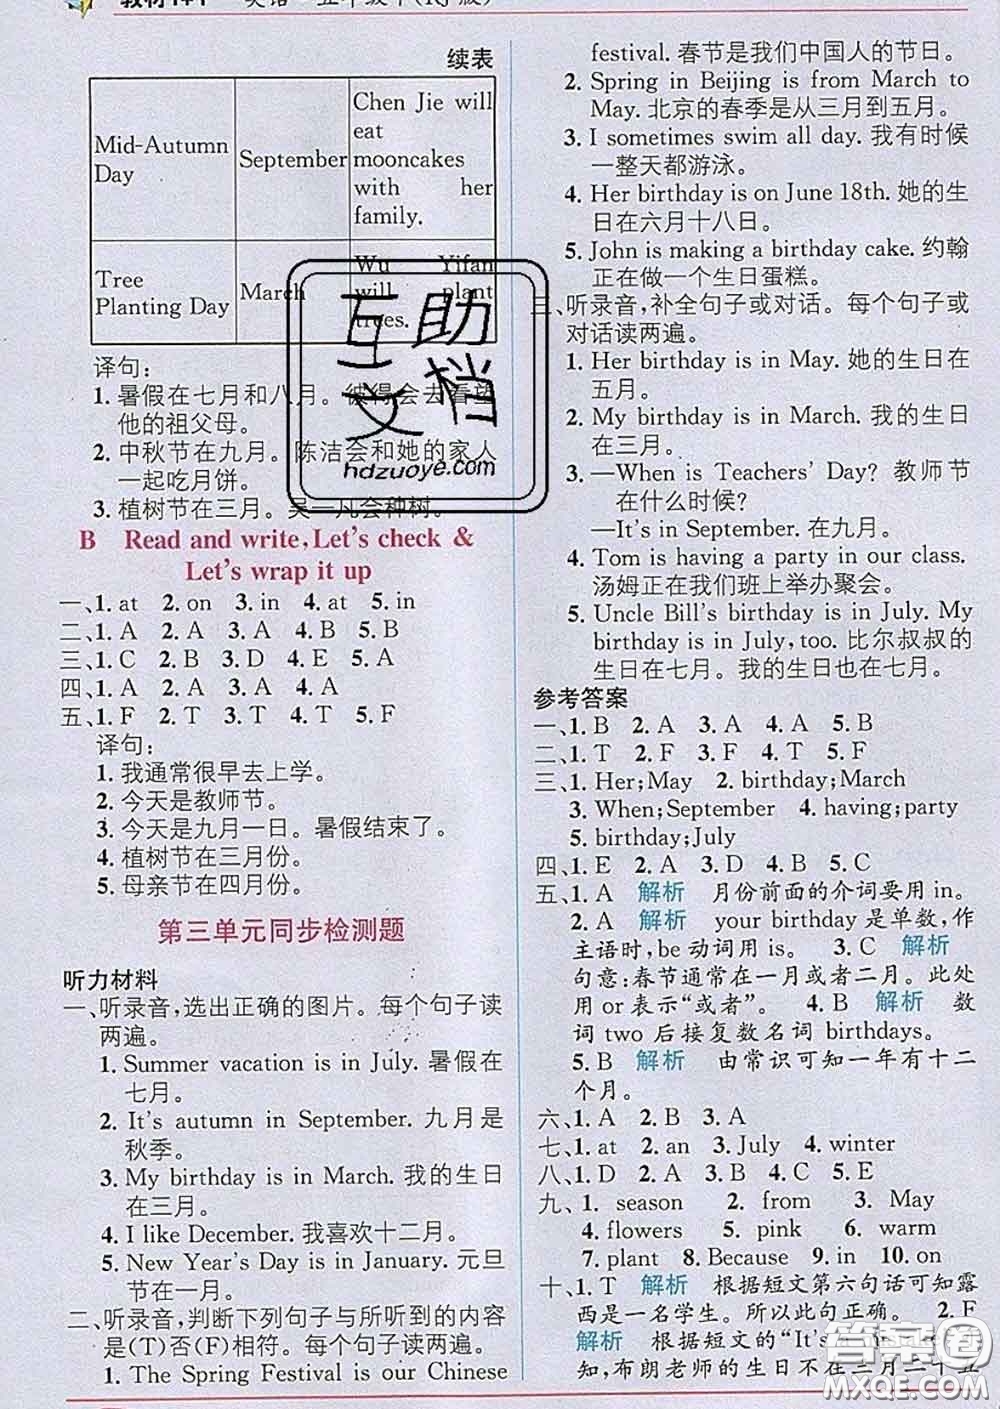 教材1+1 英语 五年级下(RJ版)
续表
Mid-Autumn Day
September
Chen Jie will eat mooncakes with her family.
Tree Planting Day
March
Wu Yifan will plant trees.
译句：
1. 暑假在七月和八月。彼得会去看望
他的祖父母。
2. 中秋节在九月。陈洁会和她的家人
一起吃月饼。
3. 植树节在三月。吴一凡会种树。
B Read and write, Let's check &
Let's wrap it up
一、1. at 2. on 3. in 4. at 5. in
二、1. A 2. A 3. A 4. B 5. B
三、1. C 2. B 3. D 4. E 5. A
四、1. A 2. A 3. A 4. A
五、1. F 2. T 3. T 4. T 5. F
译句：
1. 我通常很早去上学。
2. 今天是教师节。
3. 今天是九月一日。暑假结束了。
4. 植树节在三月份。
5. 母亲节在四月份。
第三单元同步检测题
听力材料
一、听录音,选出正确的图片。每个句子读
两遍。
1. Summer vacation is in July. 暑假在
七月。
2. It's autumn in September. 九月是
秋季。
3. My birthday is in March. 我的生日
在三月。
4. I like December. 我喜欢十二月。
5. New Year's Day is in January. 元旦
节在一月。
二、听录音,判断下列句子与所听到的内容
是(T)否(F)相符。每个句子读两遍。
1. The Spring Festival is our Chinese
festival. 春节是我们中国人的节日。
2. Spring in Beijing is from March to
May. 北京的春季是从三月到五月。
3. I sometimes swim all day. 我有时候
一整天都游泳。
4. Her birthday is on June 18th. 她的生
日在六月十八日。
5. John is making a birthday cake. 约翰
正在做一个生日蛋糕。
三、听录音,补全句子或对话。每个句子或
对话读两遍。
1. Her birthday is in May. 她的生日在
五月。
2. My birthday is in March. 我的生日
在三月。
3. —When is Teachers' Day? 教师节
在什么时候?
—It's in September. 在九月。
4. Tom is having a party in our class.
汤姆正在我们班上举办聚会。
5. Uncle Bill's birthday is in July. My
birthday is in July, too. 比尔叔叔的
生日在七月。我的生日也在七月。
参考答案
一、1. B 2. A 3. A 4. A 5. B
二、1. T 2. F 3. F 4. T 5. F
三、1. Her;May 2. birthday;March
3. When;September 4. having;party
5. birthday;July
四、1. E 2. A 3. D 4. B 5. C
五、1. A 解析 月份前面的介词要用 in。
2. A 解析 your birthday 是单数,作
主语时,be 动词用 is。 3. C 解析
句意:春节通常在一月或者二月。此处
用 or 表示“或者”。 4. B 解析 数
词 two 后接复数名词 birthdays。
5. B 解析 由常识可知一年有十二
个月。
六、1. A 2. B 3. A
七、1. at 2. an 3. July 4. winter
八、1. D 2. A 3. B 4. C 5. E
九、1. season 2. from 3. May
4. flowers 5. pink 6. warm
7. plant 8. Because 9. in 10. on
十、1. T 解析 根据短文第六句话可知露
西是一名学生。所以此句正确。 2. F
解析 根据短文的“It's
知,布朗老师的生日不在三月二十五
互助文档
hdzuoye.com
答案圈
MXQE.COM